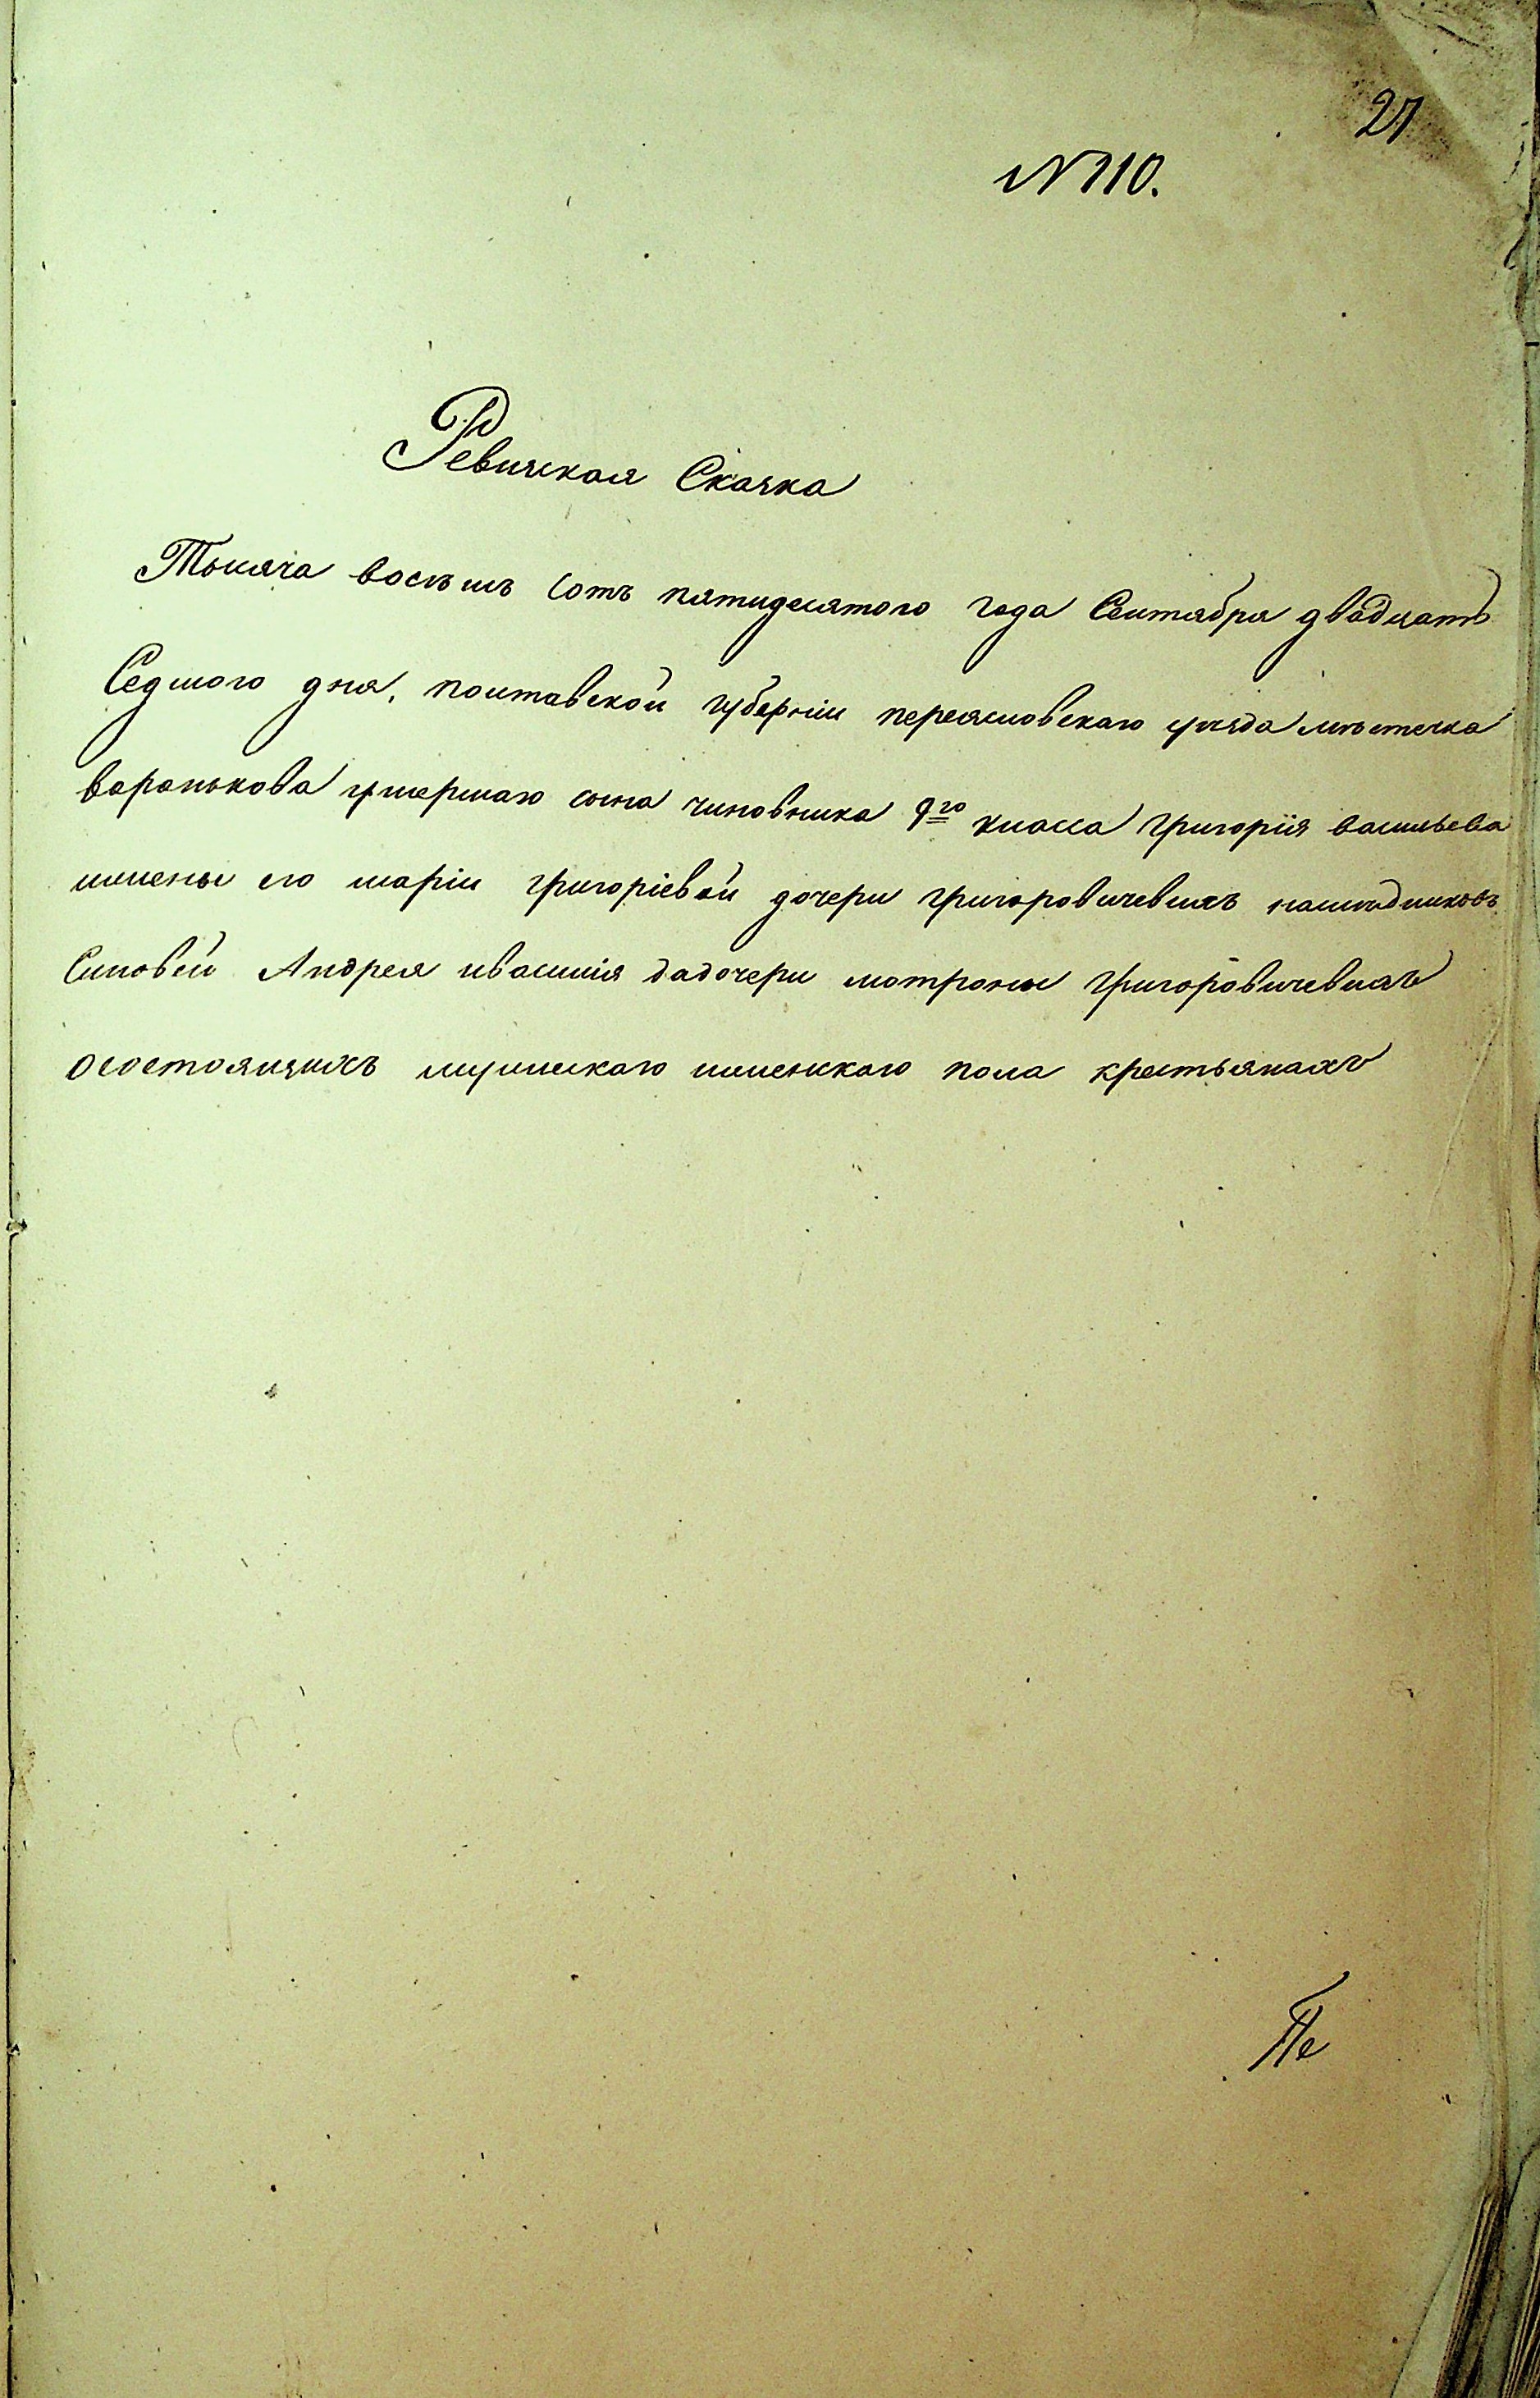 27
№110.
Ревизкая Сказка
Тысяча восемь сотъ пятидесятого года Сентября двадцать
Седмого дня, полтавской губерніи переясловскаго уезда мѣстечка
варонькова умершаго сына чиновника 9го класса григорія васильева
ижены его маріи григоріевой дочери григоровичевихъ наследниковъ
Синовей Андрея ивасилія дадочери мотроны григоровичевихъ
осостоящихъ мужескаго иженскаго пола крестьянахъ
Пе